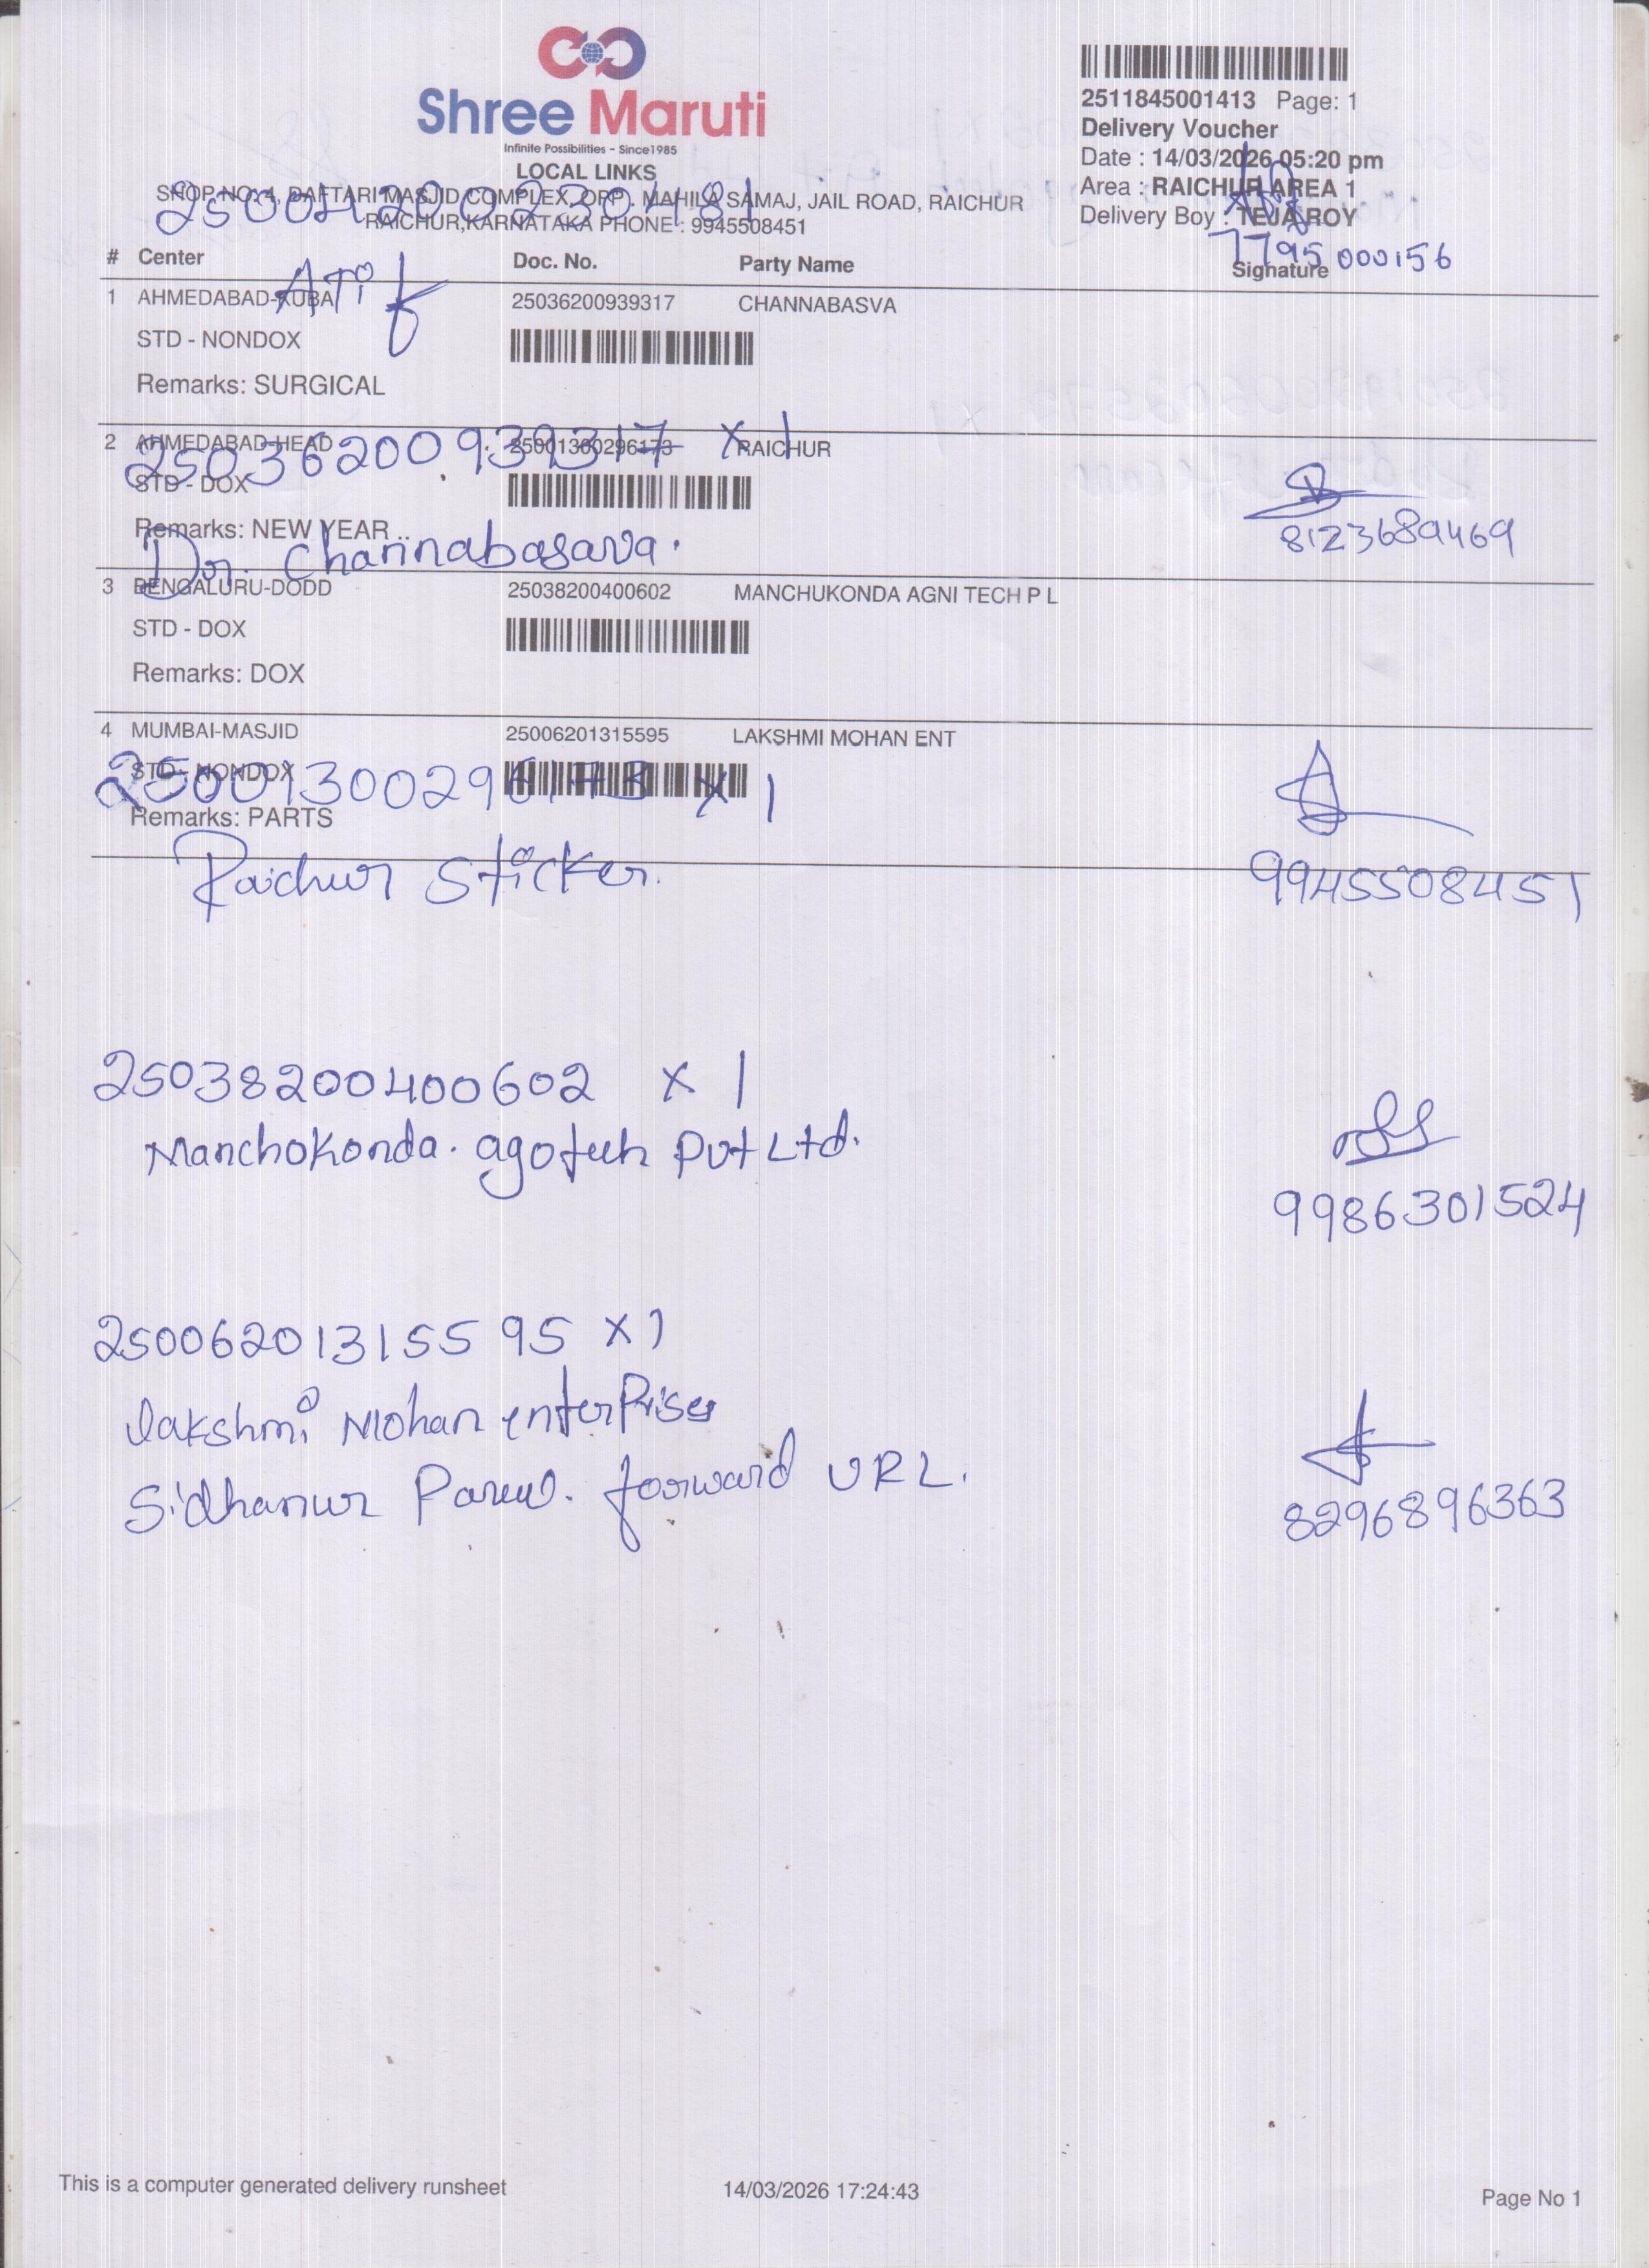 Shree Maruti
Infinite Possibilities - Since1985
LOCAL LINKS
SHOP NO: 4, DAFTARI MASJID COMPLEX, OPP. MAHILA SAMAJ, JAIL ROAD, RAICHUR
RAICHUR,KARNATAKA PHONE : 9945508451
2511845001413 Page: 1
Delivery Voucher
Date : 14/03/2026 05:20 pm
Area : RAICHUR AREA 1
Delivery Boy : TEJA ROY
Signature
25004200230481
7795000156
ATif
# Center Doc. No. Party Name
1 AHMEDABAD-KUBA 25036200939317 CHANNABASVA
STD - NONDOX
Remarks: SURGICAL
2 AHMEDABAD-HEAD 25001300296173 RAICHUR
STD - DOX
Remarks: NEW YEAR ..
25036200939317 x 1
Dr. Channabasava.
8123689469
3 BENGALURU-DODD 25038200400602 MANCHUKONDA AGNI TECH P L
STD - DOX
Remarks: DOX
4 MUMBAI-MASJID 25006201315595 LAKSHMI MOHAN ENT
STD - NONDOX
Remarks: PARTS
25001300296173 x 1
Raichur Sticker.
9945508451
25038200400602 x 1
Manchokonda. agotech Pvt Ltd.
9986301524
25006201315595 x 1
lakshmi Mohan enterPrises
Sidhanur Parcel. forward VRL.
8296896363
This is a computer generated delivery runsheet 14/03/2026 17:24:43 Page No 1